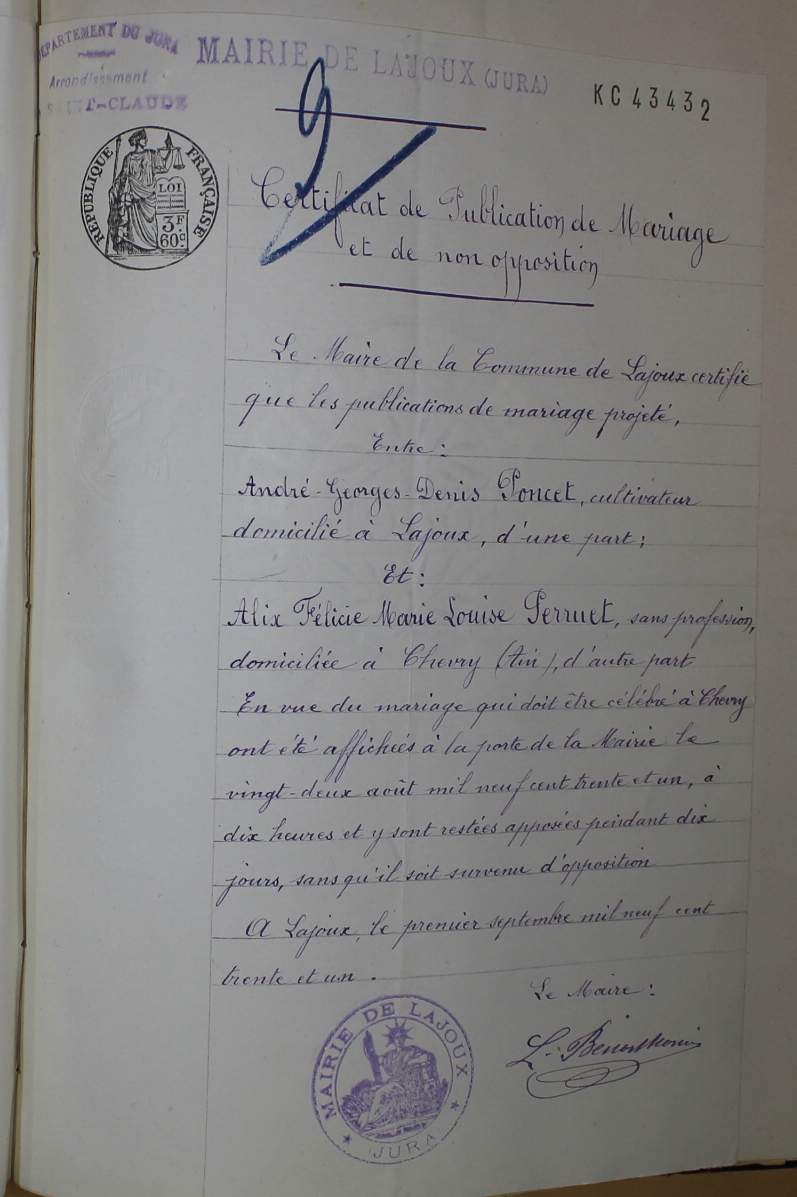 DEPARTEMENT DU JURA
Arrondissement
SAINT-CLAUDE
MAIRIE DE LAJOUX (JURA)
KC 43432
9
RÉPUBLIQUE FRANÇAISE
LOI
3F
60c
Certificat de Publication de Mariage
et de non opposition
Le Maire de la Commune de Lajoux certifie
que les publications de mariage projeté,
Entre :
André-Georges-Denis Poncet, cultivateur
domicilié à Lajoux, d'une part ;
Et :
Alix Félicie Marie Louise Perruet, sans profession,
domiciliée à Chevry (Ain), d'autre part
En vue du mariage qui doit être célébré à Chevry
ont été affichées à la porte de la Mairie le
vingt-deux août mil neuf cent trente et un, à
dix heures et y sont restées apposées pendant dix
jours, sans qu'il soit survenu d'opposition
A Lajoux, le premier septembre mil neuf cent
trente et un.
Le Maire :
MAIRIE DE LAJOUX
JURA